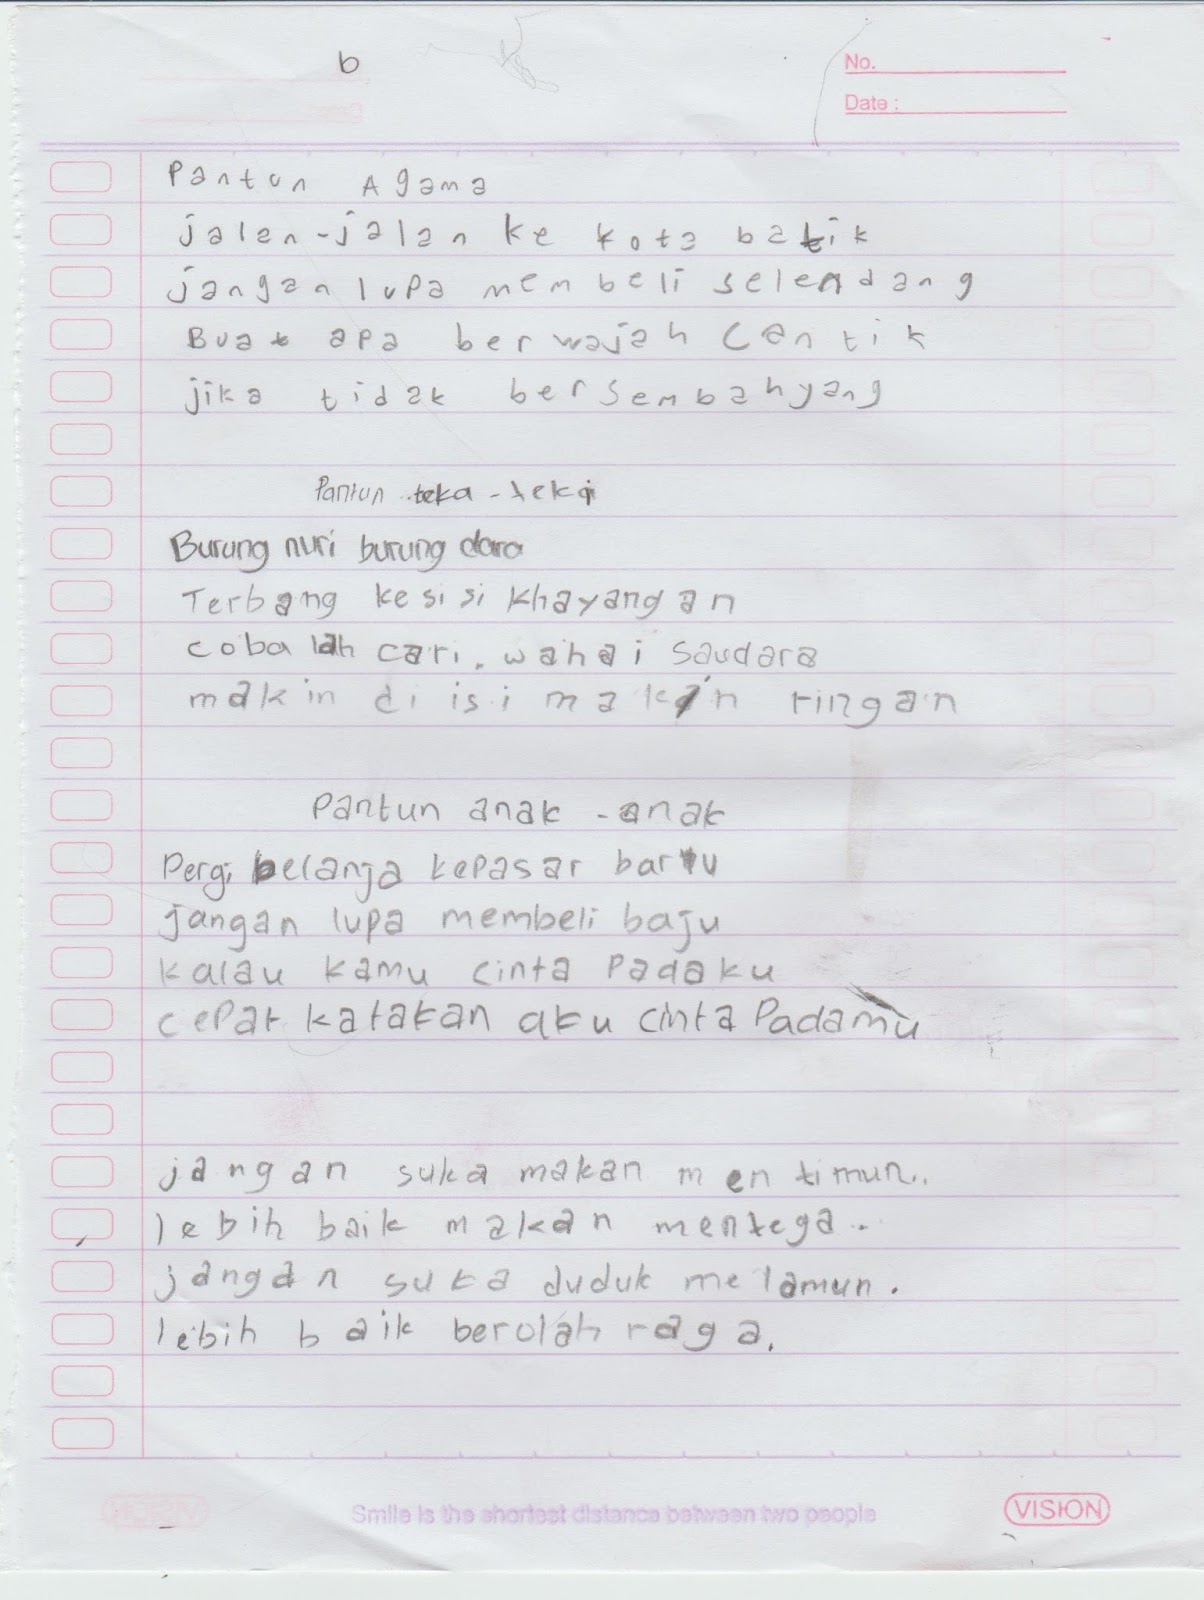 b
No.
Date :
Pantun Agama
jalan-jalan ke kota batik
jangan lupa membeli selendang
Buat apa berwajah cantik
jika tidak bersembahyang
Pantun teka-teki
Burung nuri burung dara
Terbang kesisi khayangan
cobalah cari. wahai saudara
makin di isi makin ringan
Pantun anak-anak
Pergi belanja kepasar baru
jangan lupa membeli baju
kalau kamu cinta padaku
cepat katakan aku cinta padamu
jangan suka makan mentimun..
lebih baik makan mentega.
jangan suka duduk melamun.
lebih baik berolah raga.
Smile is the shortest distance between two people
VISION